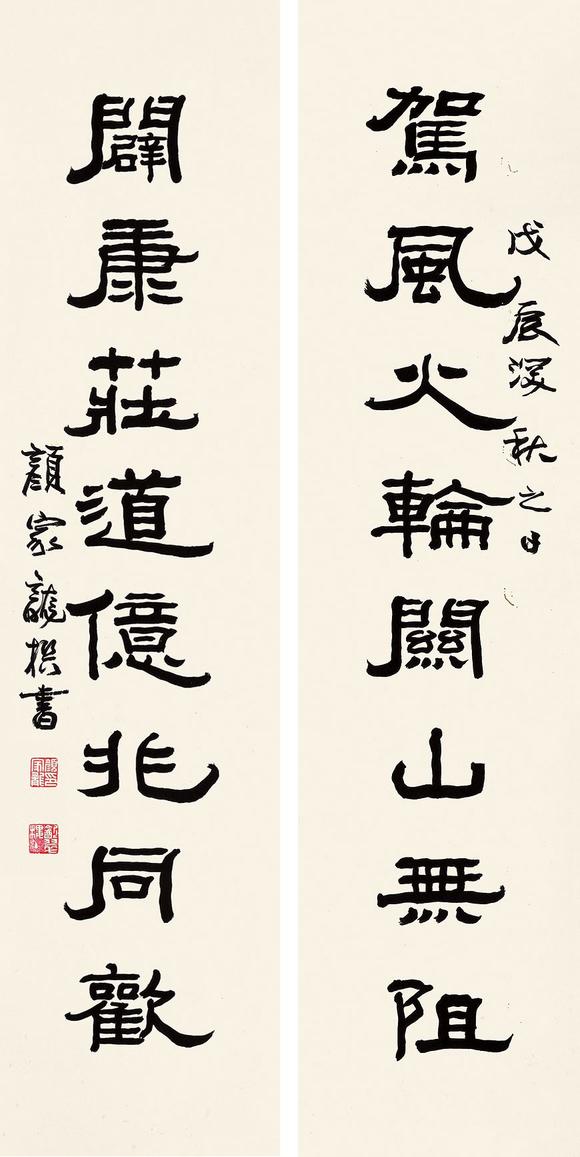 戊辰深秋之日
駕風火輪關山無阻
闢康莊道億兆同歡
顏家龍撰書